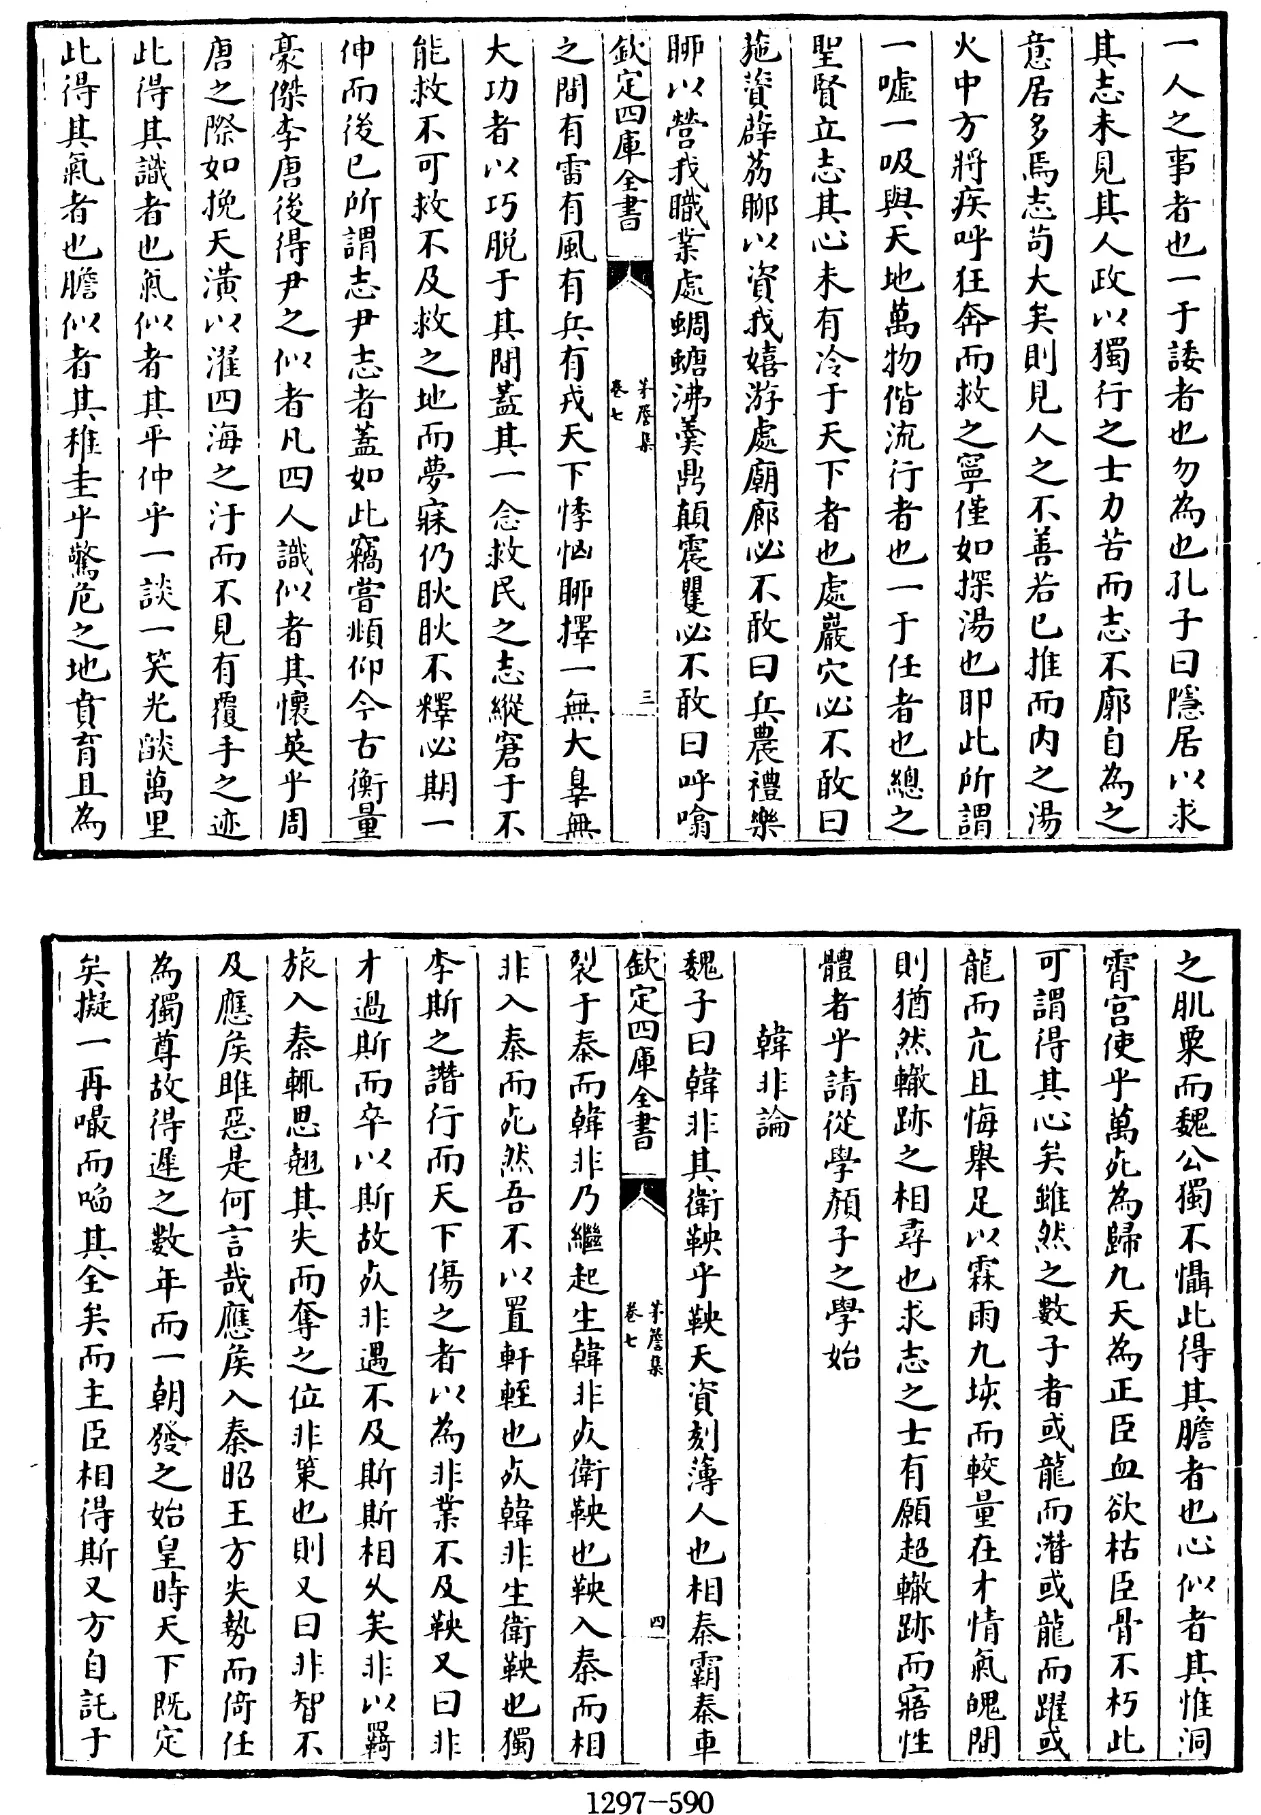 一人之事者也一于諉者也勿為也孔子曰隱居以求
其志未見其人政以獨行之士力苦而志不廓自為之
意居多焉志苟大矣則見人之不善若已推而内之湯
火中方將疾呼狂奔而救之寧僅如探湯也即此所謂
一噓一吸與天地萬物偕流行者也一于任者也總之
聖賢立志其心未有冷于天下者也處巖穴必不敢曰
薜荔聊以資我嬉游處廟廊必不敢曰兵農禮樂
聊以營我職業處蜩螗沸羮鼎顛震瞿必不敢曰呼噏
欽定四庫全書
茅簷集
卷七
三
之間有雷有風有兵有戎天下悸恼聊擇一無大辠無
大功者以巧脱于其間蓋其一念救民之志縱窘于不
能救不可救不及救之地而夢寐仍耿耿不釋必期一
伸而後已所謂志尹志者蓋如此竊嘗頫仰今古衡量
豪傑李唐後得尹之似者凡四人識似者其懷英乎周
唐之際如挽天潢以濯四海之汙而不見有覆手之迹
此得其識者也氣似者其平仲乎一談一笑光燄萬里
此得其氣者也膽似者其稚圭乎驚危之地賁育且為
之肌粟而魏公獨不懾此得其膽者也心似者其惟洞
霄宫使乎萬死為歸九天為正臣血欲枯臣骨不朽此
可謂得其心矣雖然之數子者或龍而潛或龍而躍或
龍而亢且悔舉足以霖雨九垓而較量在才情氣魄間
則猶然轍跡之相尋也求志之士有願超轍跡而寤性
體者乎請從學顏子之學始
韓非論
魏子曰韓非其衛鞅乎鞅天資刻薄人也相秦霸秦車
欽定四庫全書
茅簷集
卷七
四
裂于秦而韓非乃繼起生韓非死衛鞅也鞅入秦而相
非入秦而死然吾不以置軒輊也死韓非生衛鞅也獨
李斯之譖行而天下傷之者以為非業不及鞅又曰非
才過斯而卒以斯故死非遇不及斯斯相乆矣非以羇
旅入秦輒思翹其失而奪之位非策也則又曰非智不
及應侯雎惡是何言哉應侯入秦昭王方失勢而倚任
為獨尊故得遲之數年而一朝發之始皇時天下既定
矣擬一再嘬而啗其全矣而主臣相得斯又方自託于
1297-590